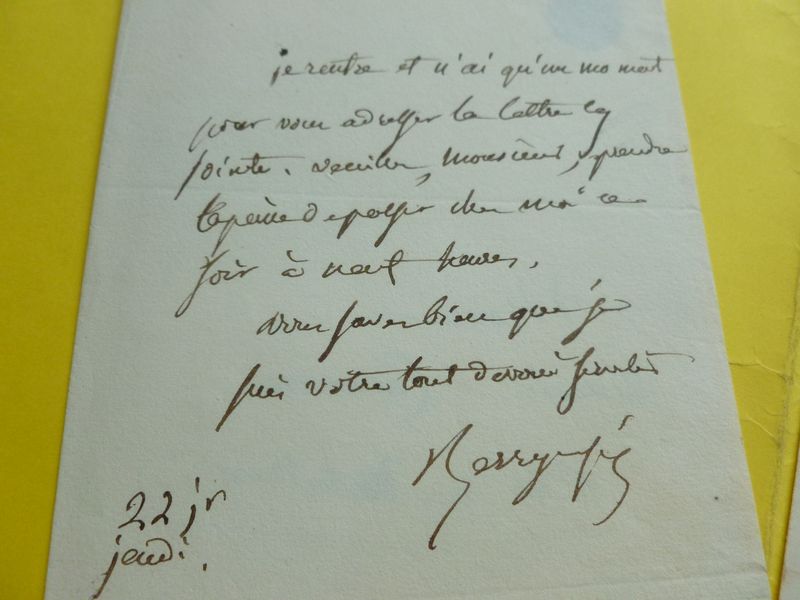 je rentre et n'ai qu'un moment
pour vous adresser la lettre cy
jointe. veuillez, Monsieur, prendre
la peine de passer chez moi ce
soir à neuf heures.
vous savez bien que je
suis votre tout dévoué
22 jr
jeudi.